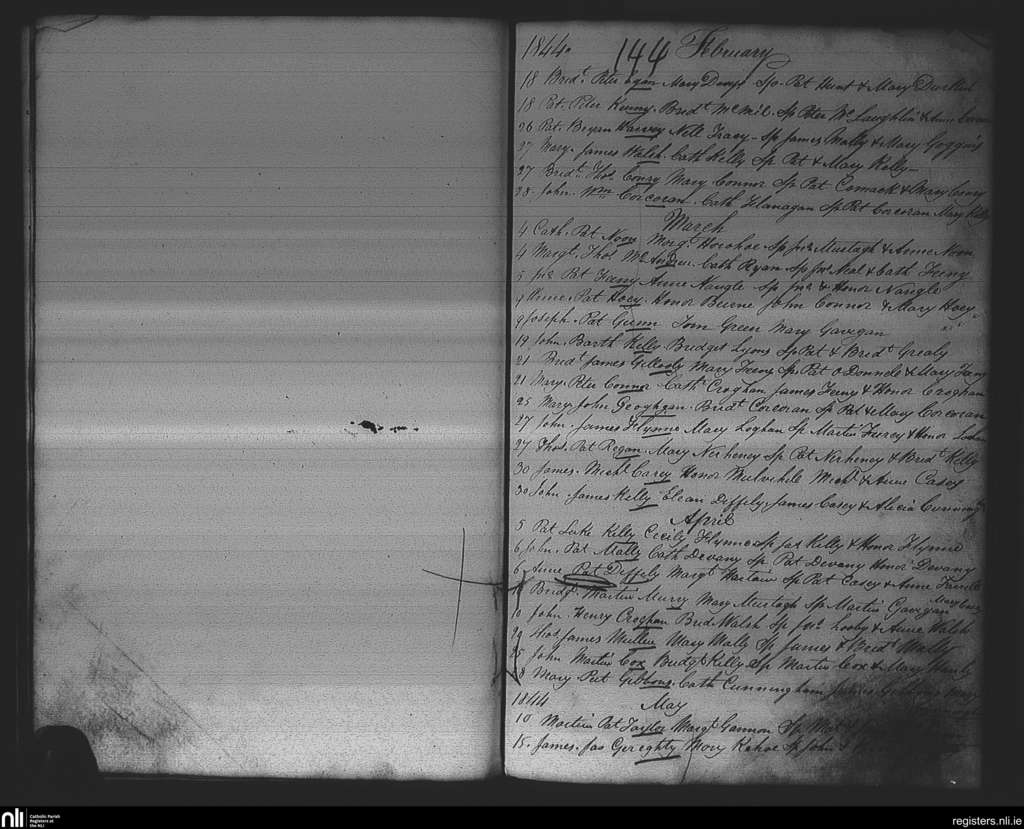 1844. 144 February
18 Bridt. Peter Egan Mary Dempy Sp. Pat Hunt & Mary Durkin
18 Pat. Peter Kenny. Bridt McMil. Sp Peter McLaughlin & Anne
26 Pat. Bryan Harvey Nell Tracy - Sp James Mally & Mary Goggins
27 Mary. James Walsh. Cath Kelly Sp Pat & Mary Kelly -
27 Bridt. Thos. Conry Mary Connor Sp Pat Comack & Mary Conry
28. John. Wm Corcoran. Cath Flanagan Sp Pat Corcoran Mary Kelly
March
4 Cath. Pat Noon Margt. Horohoe Sp Jno. Murtagh & Anne Noon
4 Margt. Thos. McAndrew. Cath Ryan Sp Jno Neal & Cath Feeny
5 Jno. Pat Feeny Anne Nangle Sp Jno. & Honor Nangle
9 Anne. Pat Hoey. Honor Burne John Connor & Mary Hoey
9 Joseph. Pat Gunn Tom Green Mary Gavigan
19 John. Barth Kelly Bridget Lyons Sp Pat & Bridt Grealy
21 Bridt James Gilkooly Mary Feeny Sp. Pat O Donnels & Mary Feeny
21 Mary. Peter Connor Cath. Croghan James Feeny & Honor Croghan
25 Mary John Geoghgan. Bridt. Corcoran Sp Pat & Mary Corcoran
27 John. James Flynne Mary Loghan Sp Martin Furey & Honor
27 Thos. Pat Regan. Mary Nerheney Sp Pat Nerheney & Bridt. Kelly
30 James. Michl. Carey Honor Mulvihile Michl. & Anne Casey
30 John. James Kelly Elean Deffely. James Casey & Alicia Cunning
April
5 Pat Luke Kelly Cecily Flynne Sp Jas Kelly & Honor Flynne
6 John. Pat Mally Cath Devany Sp Pat Devany Honor Devany
6 Anne Pat Deffely Margt Hastain Sp Pat Casey & Anne
Bridgt. Martin Murry Mary Murtagh Sp Martin Gavigan
10 John. Henry Croghan Brid. Walsh Sp Jno. Looby & Anne Walsh
Thos. James Mullin Mary Mally Sp James & Bridt Mally
25 John Martin Cox Bridgt Kelly Sp Martin Cox & Mary
28 Mary Pat Gibbons. Cath Cunningham James Gibbons
1844 May
10 Martin Pat Taylor Margt Gannon Sp
15. James. Jas Gereghty Mary Kehoe Sp John &
nli
Catholic Parish
Registers at
the NLI
registers.nli.ie